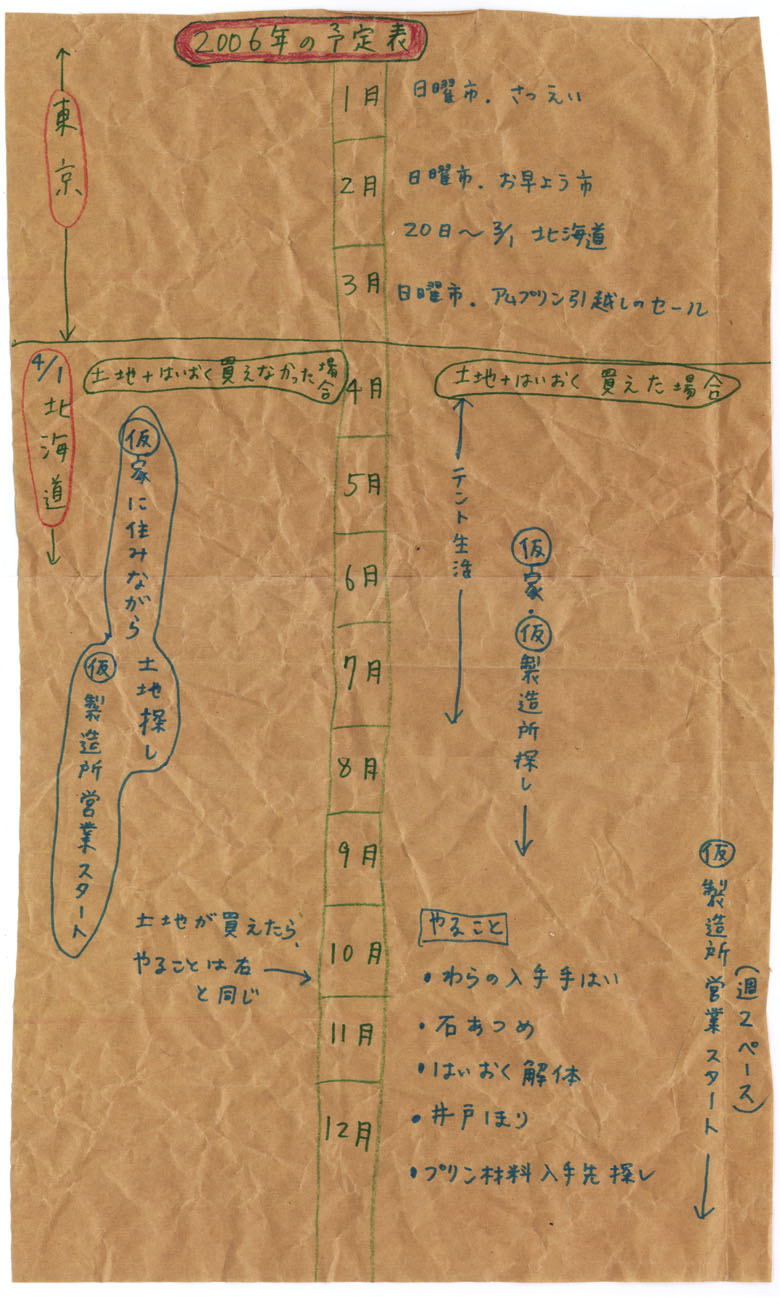 2006年の予定表
東京
1月
日曜市．さつえい
2月
日曜市．お早よう市
20日〜3/1 北海道
3月
日曜市．アムプリン引越しのセール
4/1 北海道
土地+はいおく買えなかった場合
4月
土地+はいおく 買えた場合
5月
6月
7月
8月
9月
10月
11月
12月
仮家に住みながら土地探し
仮製造所営業スタート
土地が買えたら、
やることは右
と同じ
テント生活
仮家・仮製造所探し
やること
・わらの入手手はい
・石あつめ
・はいおく解体
・井戸ほり
・プリン材料入手先探し
仮製造所営業スタート
(週2ペース)